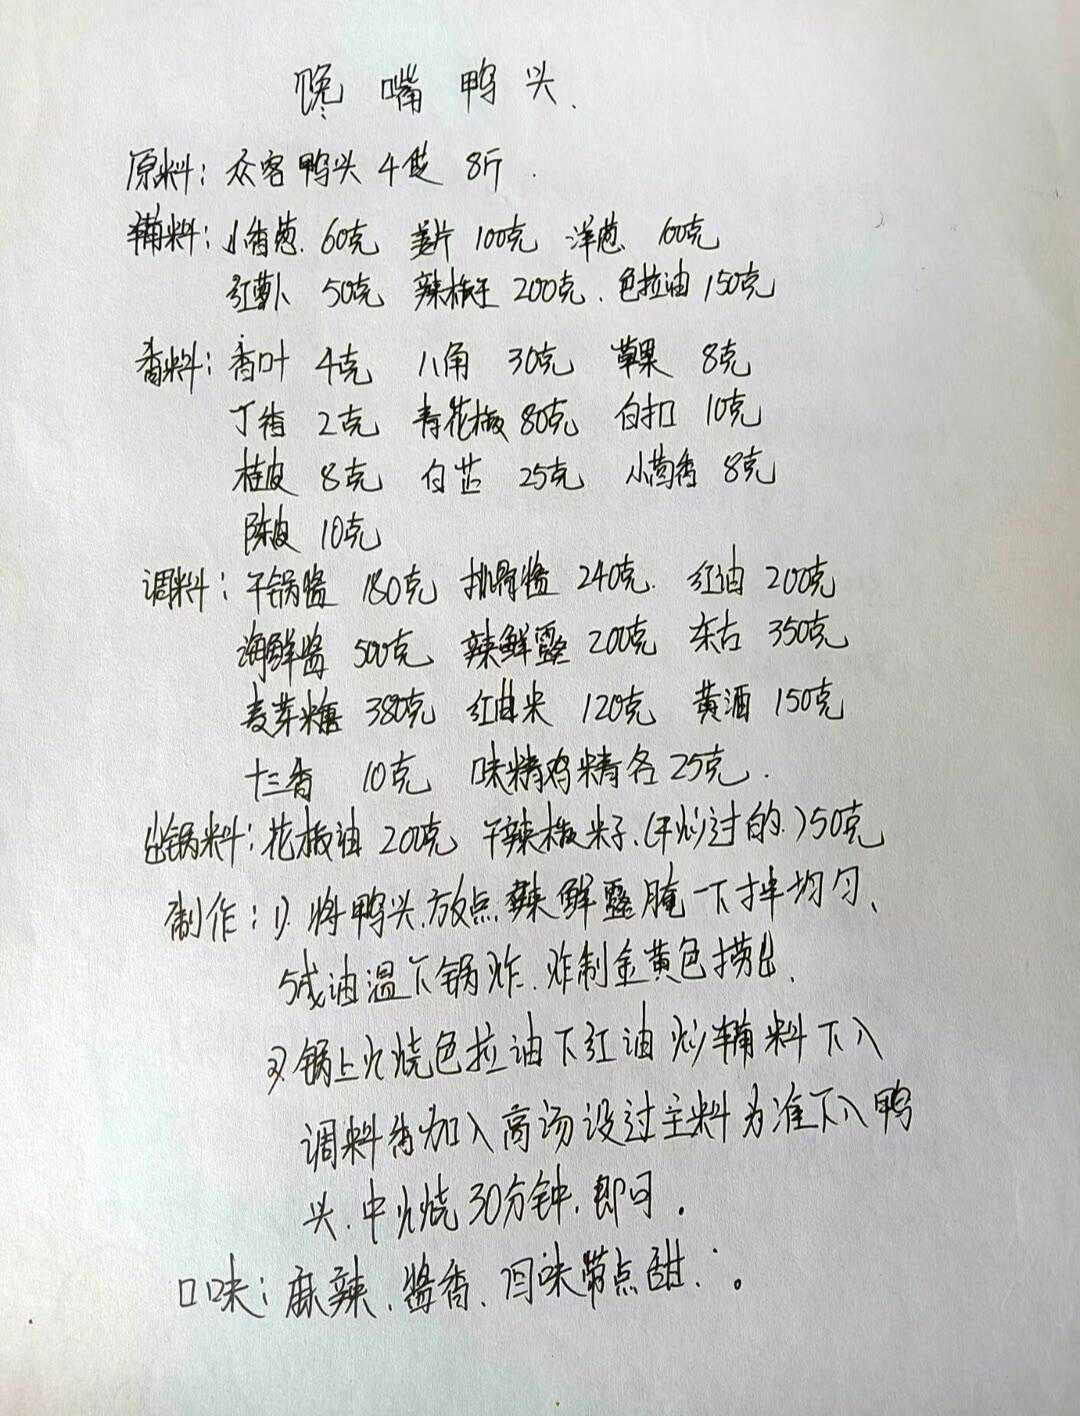 馋嘴鸭头.
原料: 众客鸭头 4袋 8斤.
辅料: 小香葱. 60克 姜片 100克 洋葱. 100克
红萝卜 50克 辣椒王 200克. 色拉油 150克
香料: 香叶 4克 八角 30克 草果 8克
丁香 2克 青花椒 80克 白扣 10克
桂皮 8克 白芷 25克 小茴香 8克
陈皮 10克
调料: 干锅酱 180克 排骨酱 240克. 红油 200克
海鲜酱 500克 辣鲜露 200克 东古 350克
麦芽糖 380克 红曲米 120克 黄酒 150克
十三香 10克 味精鸡精各25克.
出锅料: 花椒油 200克 干辣椒米子.(干炒过的.)50克
制作: 1). 将鸭头.放点辣鲜露腌一下拌均匀、
5成油温下锅炸. 炸制金黄色捞出.
2). 锅上火烧色拉油下红油炒辅料下入
调料香加入高汤没过主料为准下入鸭
头. 中火烧30分钟. 即可.
口味: 麻辣. 酱香. 回味带点甜.。